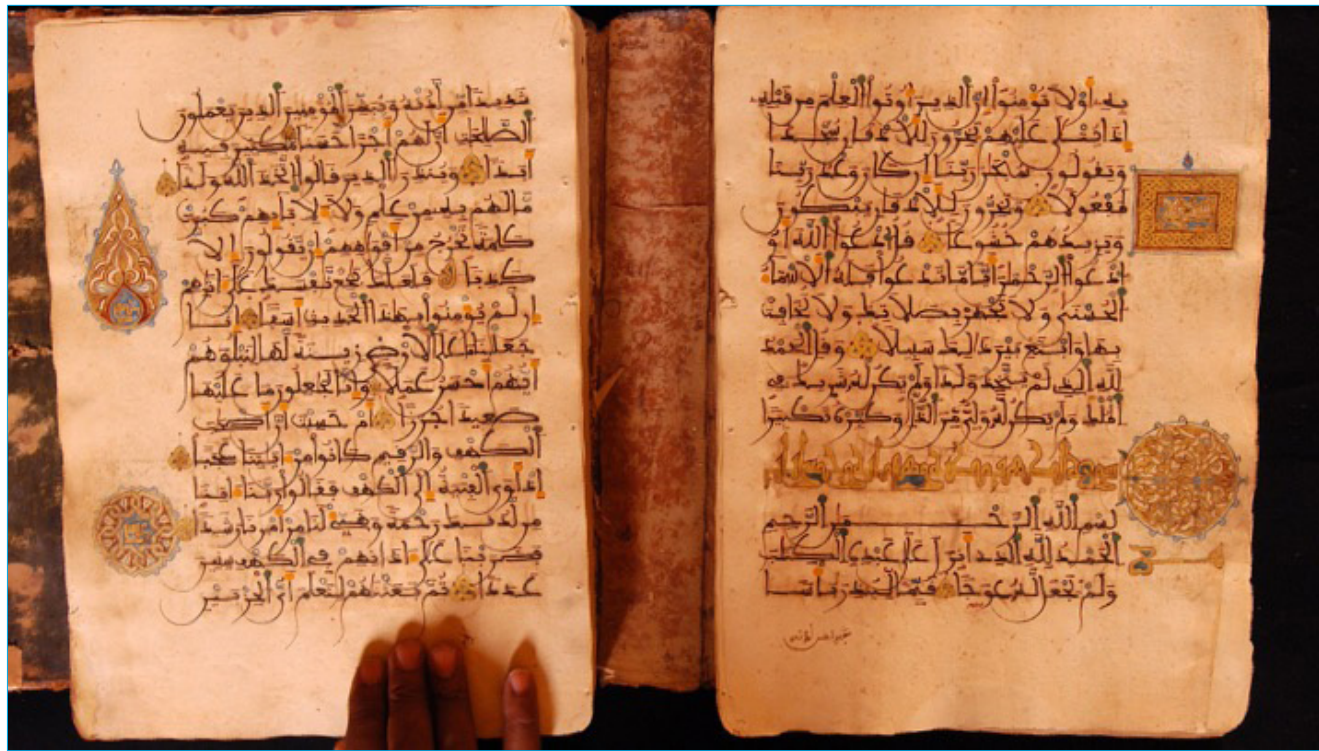 به أو لا تؤمنوا إن الذين أوتوا العلم من قبله
إذا يتلى عليهم يخرون للأذقان سجدا
ويقولون سبحن ربنا إن كان وعد ربنا
لمفعولا ويخرون للأذقان يبكون
ويزيدهم خشوعا قل ادعوا الله أو
ادعوا الرحمن أيا ما تدعوا فله الأسماء
الحسنى ولا تجهر بصلاتك ولا تخافت
بها وابتغ بين ذلك سبيلا وقل الحمد
لله الذي لم يتخذ ولدا ولم يكن له شريك في
الملك ولم يكن له ولي من الذل وكبره تكبيرا
بسم الله الرحمن الرحيم
الحمد لله الذي أنزل على عبده الكتب
ولم يجعل له عوجا قيما لينذر بأسا
شديدا من لدنه ويبشر المؤمنين الذين يعملون
الصلحت أن لهم أجرا حسنا مكثين فيه
أبدا وينذر الذين قالوا اتخذ الله ولدا
ما لهم به من علم ولا لأبائهم كبرت
كلمة تخرج من أفواههم إن يقولون إلا
كذبا فلعلك بخع نفسك على أثرهم
إن لم يؤمنوا بهذا الحديث أسفا إنا
جعلنا ما على الأرض زينة لها لنبلوهم
أيهم أحسن عملا وإنا لجعلون ما عليها
صعيدا جرزا أم حسبت أن أصحب
الكهف والرقيم كانوا من ءايتنا عجبا
إذ أوى الفتية إلى الكهف فقالوا ربنا ءاتنا
من لدنك رحمة وهيئ لنا من أمرنا رشدا
فضربنا على ءاذانهم في الكهف سنين
عددا ثم بعثنهم لنعلم أي الحزبين